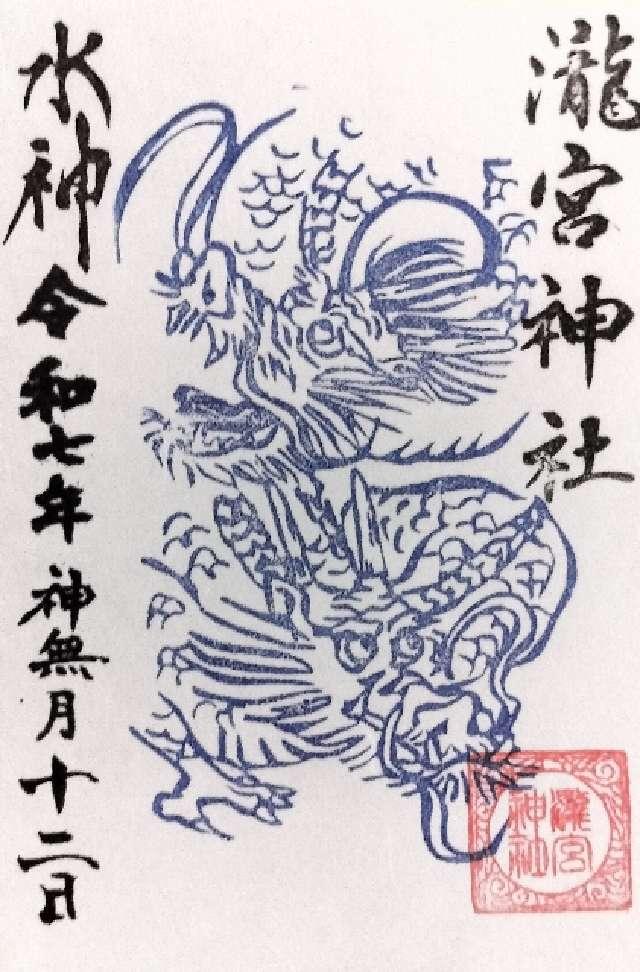 瀧宮神社
水神 令和七年 神無月十二日
瀧宮
神社